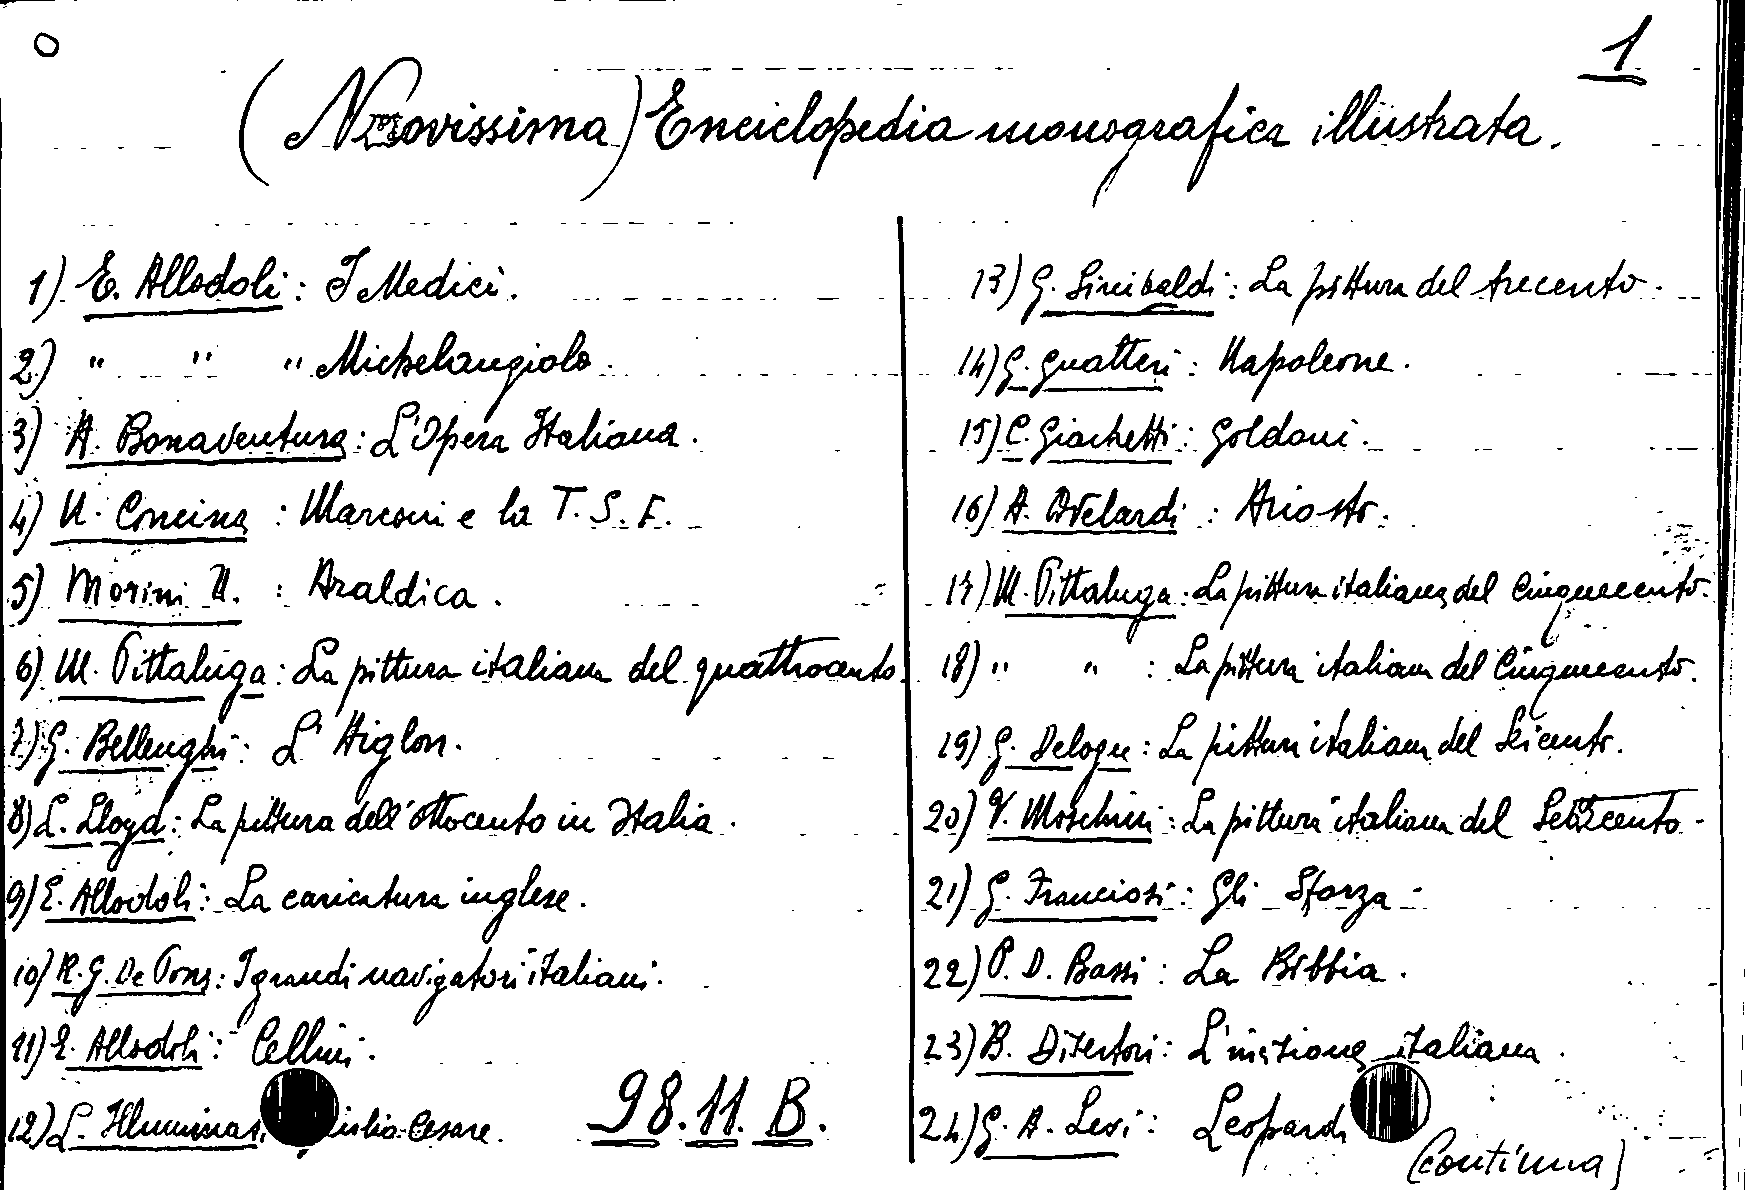 1
(Nuovissima) Enciclopedia monografica illustrata.
1) E. Allodoli: I Medici.
2) " " " Michelangiolo.
3) A. Bonaventura: L'Opera Italiana.
4) U. Concina: Marconi e la T. S. F.
5) Morini U.: Araldica.
6) M. Pittaluga: La pittura italiana del quattrocento.
7) G. Bellenghi: L'Aiglon.
8) L. Lloyd: La pittura dell'Ottocento in Italia.
9) E. Allodoli: La caricatura inglese.
10) R. G. De Pons: I grandi navigatori italiani.
11) E. Allodoli: Cellini.
12) L. Cesare.
98.11.B.
13) G. Sinibaldi: La pittura del trecento.
14) G. Quatteri: Napoleone.
15) C. Giachetti: Goldoni.
16) A. Avelardi: Ariosto.
17) M. Pittaluga: La pittura italiana del Cinquecento.
18) " " : La pittura italiana del Cinquecento.
19) G. Delogu: La pittura italiana del Seicento.
20) V. Moschini: La pittura italiana del Settecento.
21) G. Franciosi: Gli Sforza.
22) P. D. Bassi: La Bibbia.
23) B. Disertori: L'incisione italiana.
24) G. A. Levi: Leopardi
(continua)